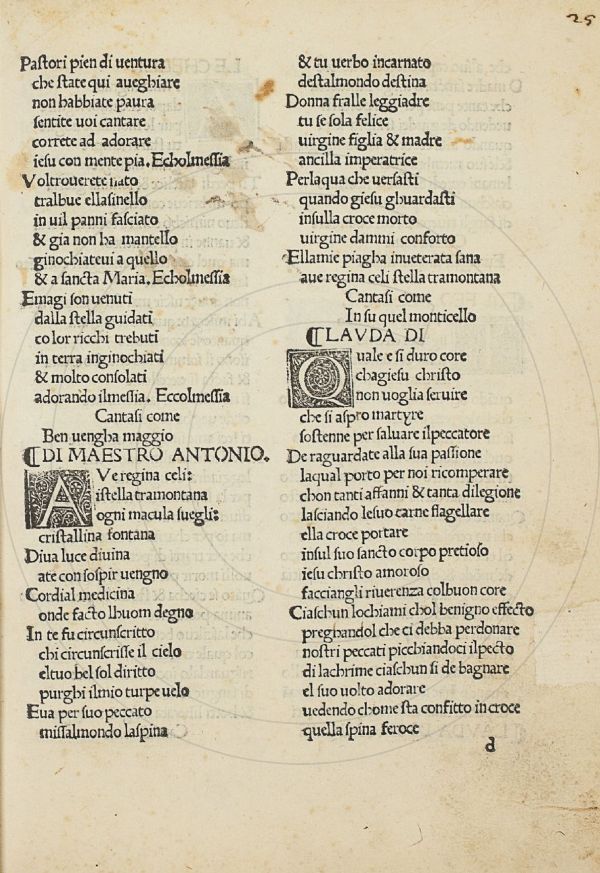 25
Paſtori pien di uentura
che ſtate qui aueghiare
non habbiate paura
ſentite uoi cantare
correte ad adorare
ieſu con mente pia. Echolmeſſia
Voltrouerete nato
tralbue ellaſinello
in uil panni faſciato
& gia non ha mantello
ginochiateui a quello
& a ſancta Maria. Echolmeſſia
Emagi ſon uenuti
dalla ſtella guidati
co lor ricchi trebuti
in terra inginochiati
& molto conſolati
adorando ilmeſſia. Eccolmeſſia
Cantaſi come
Ben uengha maggio
⸿DI MAESTRO ANTONIO.
AVe regina celi:
iſtella tramontana
ogni macula ſuegli:
criſtallina fontana
Diua luce diuina
a te con ſoſpir uengno
Cordial medicina
onde facto lhuom degno
In te fu circunſcritto
chi circunſcriſſe il cielo
eltuo bel ſol diritto
purghi ilmio turpe uelo
Eua per ſuo peccato
miſſalmondo laſpina
& tu uerbo incarnato
deſtalmondo deſtina
Donna fralle leggiadre
tu ſe ſola felice
uirgine figlia & madre
ancilla imperatrice
Perlaqua che uerſaſti
quando gieſu ghuardaſti
inſulla croce morto
uirgine dammi conforto
Ellamie piagha inueterata ſana
aue regina celi ſtella tramontana
Cantaſi come
In ſu quel monticello
⸿LAVDA DI
Quale e ſi duro core
chagieſu chriſto
non uoglia ſeruire
che ſi aſpro martyre
ſoſtenne per ſaluare ilpeccatore
De raguardate alla ſua paſſione
laqual porto per noi ricomperare
chon tanti affanni & tanta dilegione
laſciando leſuo carne flagellare
ella croce portare
inſul ſuo ſancto corpo pretioſo
ieſu chriſto amoroſo
facciangli riuerenza colbuon core
Ciaſchun lochiami chol benigno effecto
preghandol che ci debba perdonare
noſtri peccati picchiandoci ilpecto
di lachrime ciaſchun ſi de bagnare
el ſuo uolto adorare
uedendo chome ſta confitto in croce
quella ſpina feroce
d